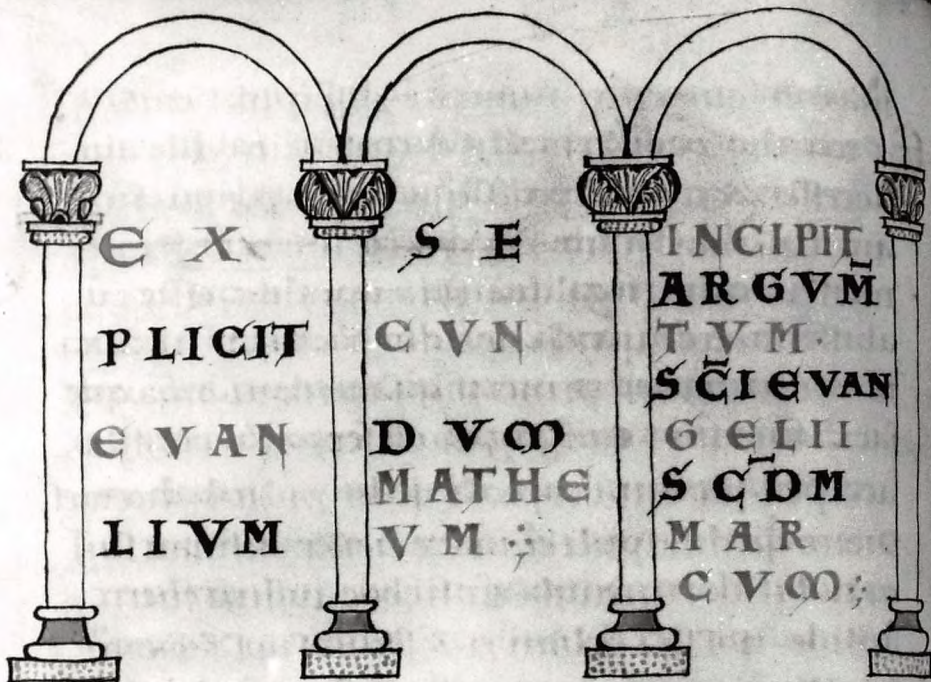 EX
PLICIT
EVAN
LIVM
SE
CVN
DVM
MATHE
VM
INCIPIT
ARGVM̅
TVM·
SC̅I EVAN
GELII
SC̅DM
MAR
CVM